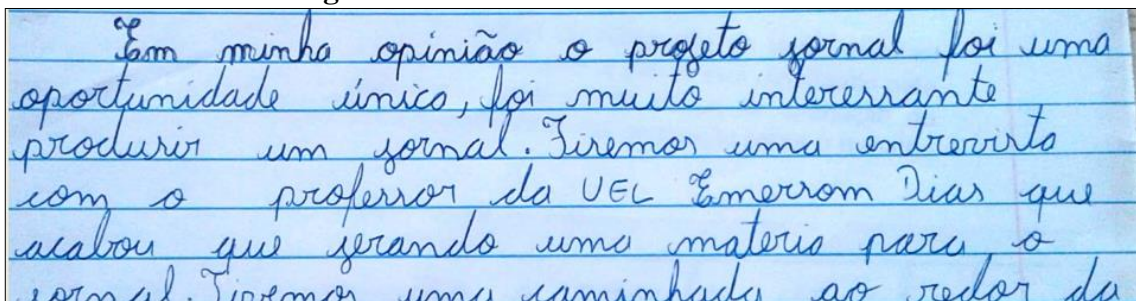 Em minha opinião o projeto jornal foi uma
oportunidade único, foi muito interessante
produzir um jornal. Tivemos uma entrevista
com o professor da UEL Emerson Dias que
acabou que gerando uma materia para o
jornal. Tivemos uma caminhada ao redor da